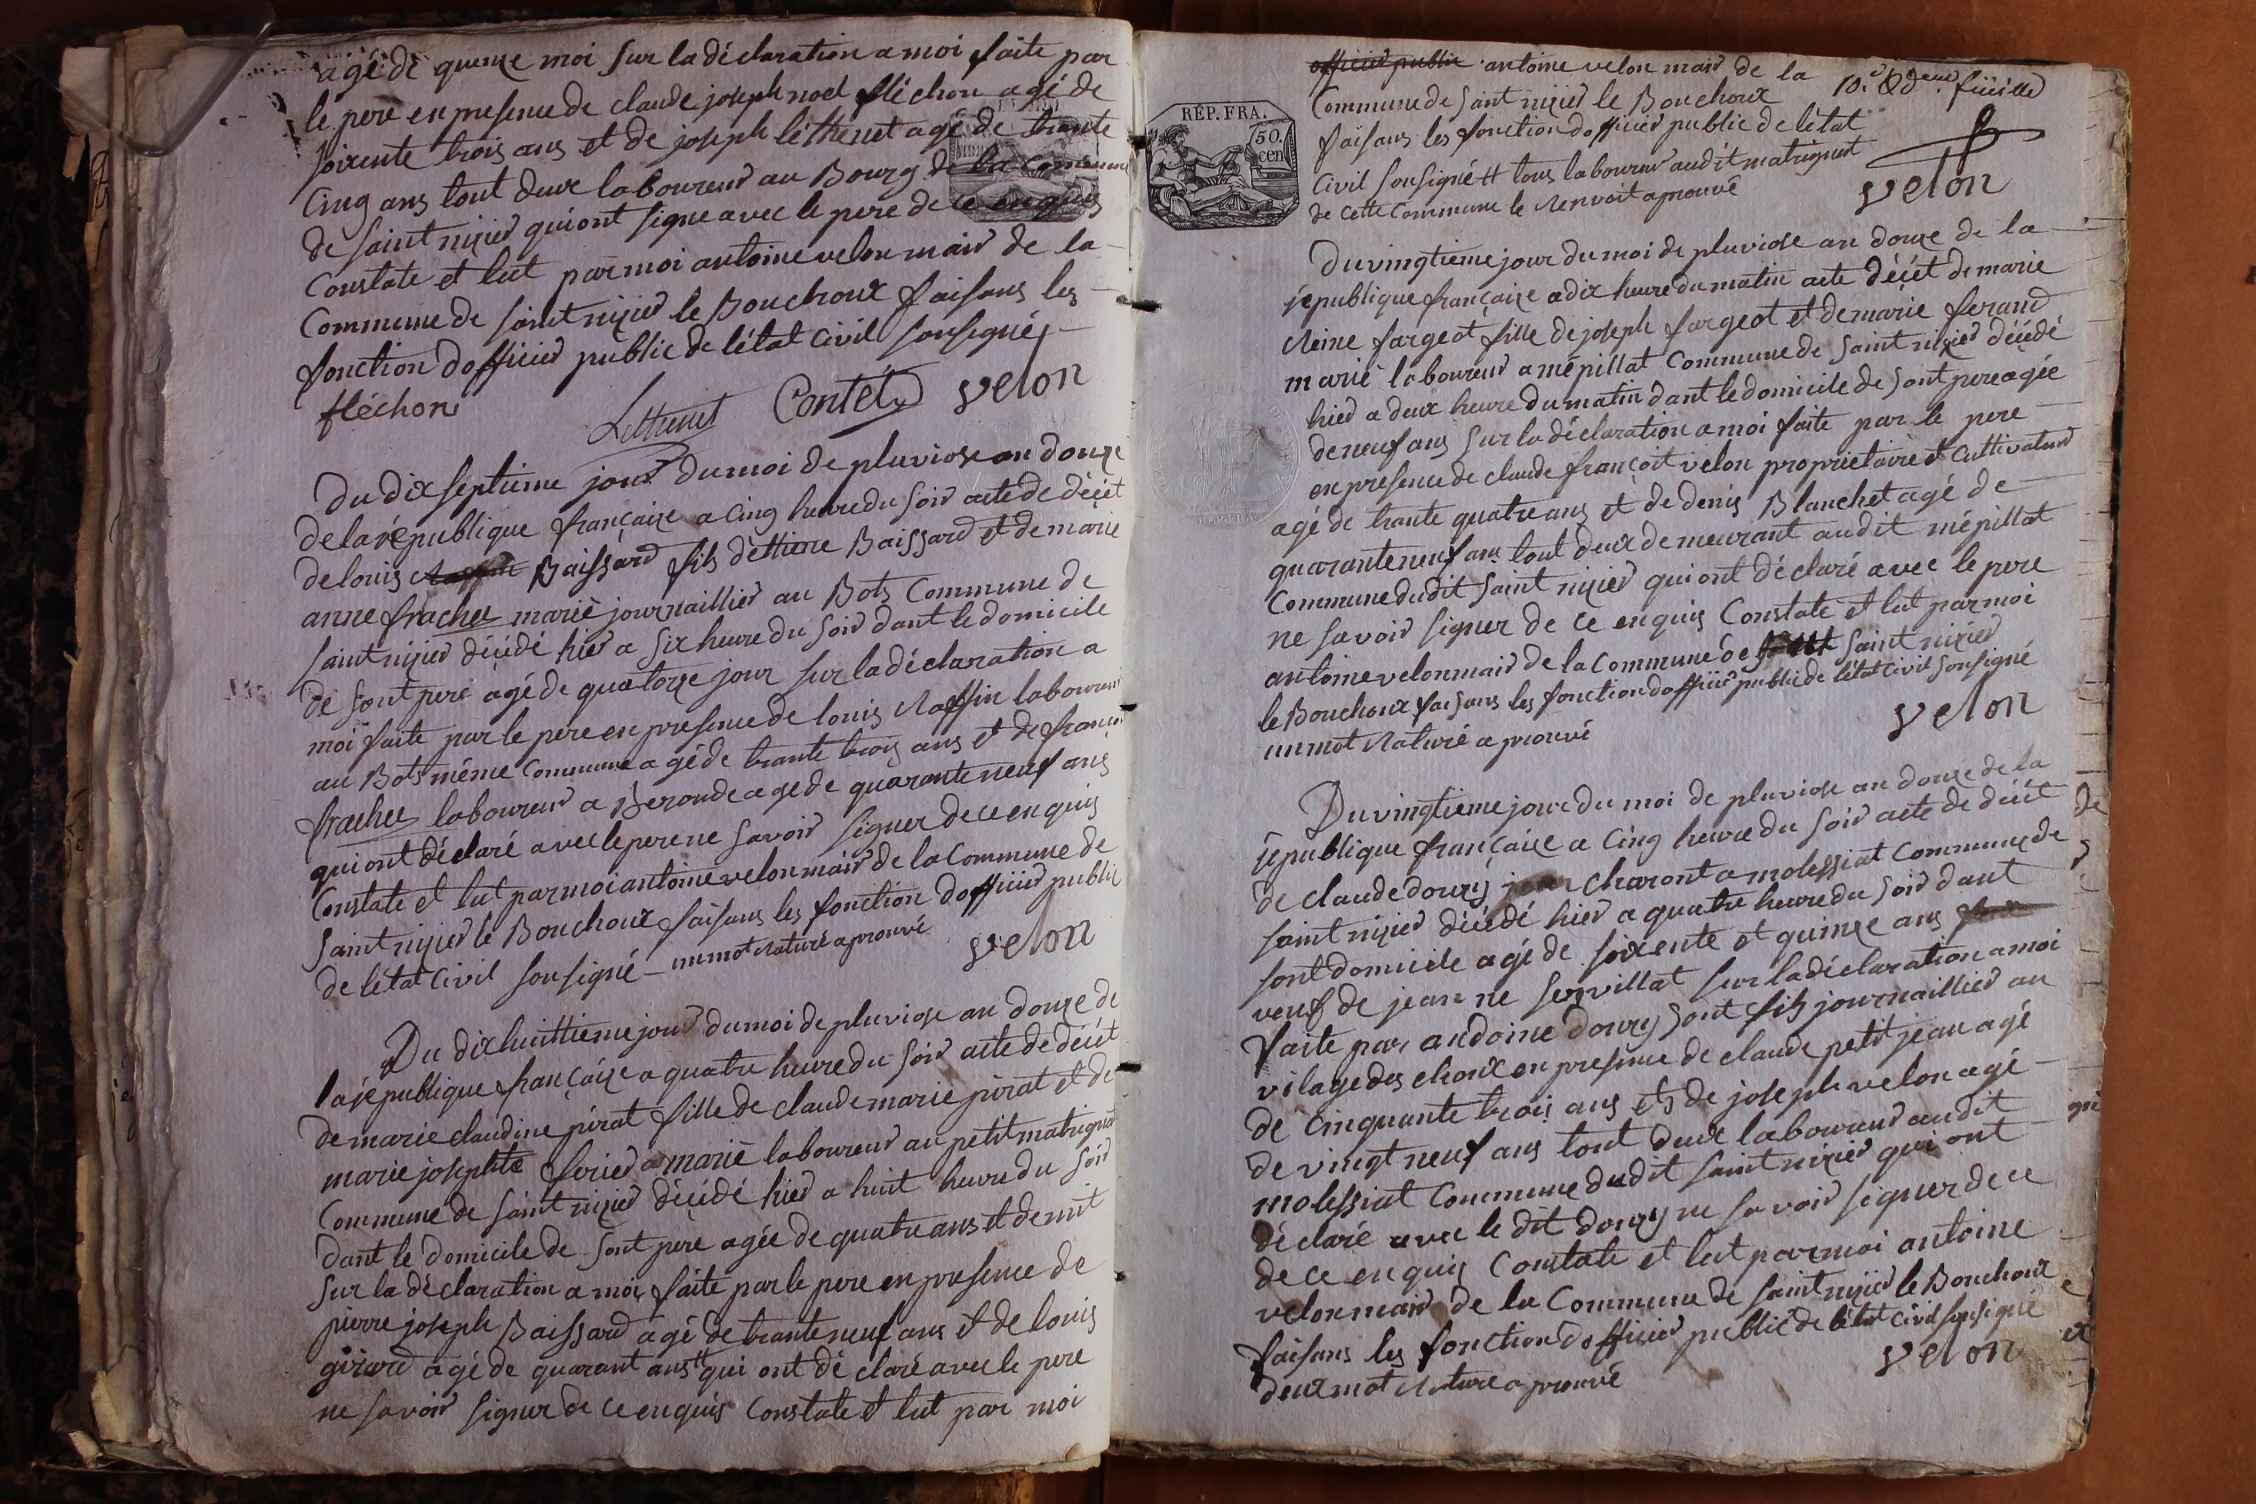 agé de quinze moi sur la déclaration a moi faite par
le pere en presence de claude joseph noel fléchon agé de
soixente trois ans et de joseph léthenet agé de trante
cinq ans tout deux laboureur au Bourg de la commune
de saint nizier qui ont signe avec le pere de ce enquis
Constate et lut par moi antoine velon mair de la
Commune de saint nizier le Bouchoux faisans les
fonction dofficier public de létat Civil sousigné
fléchon Lethenet Contet velon
Du dix septieme jour du moi de pluviose an douze
de la république françaize a cinq heure du soir acte de décét
de louis Baissard fils dettiene Baissard et de marie
anne frachet marié journaillier au Bots Commune de
saint nizier décédé hier a six heure du soir dant le domicile
de sont pere agé de quatorze jour sur la déclaration a
moi faite par le pere en presence de louis Raffin laboureur
au Bots même Commune agé de trante trois ans et de françoi
frachet laboureur a Beronde age de quarante neuf ans
qui ont déclaré avec le pere ne savoir signer de ce enquis
Constate et lut par moi antoine velon mair de la Commune de
saint nizier le Bouchoux faisans les fonction dofficier public
de létat Civil sousigné un mot raturé aprouvé
velon
Du dix huittieme jour du moi de pluviose an douze de
la république françaize a quatre heure du soir acte de décét
de marie claudine pirat fille de claude marie pirat et de
marie josephte ferier marié laboureur au petit matrignat
Commune de saint nizier décédé hier a huit heure du soir
dant le domicile de sont pere agée de quatre ans et demit
sur la déclaration a moi faite par le pere en presence de
pierre joseph Baissard agé de trante neuf ans et de louis
girard agé de quarant ans # qui ont déclaré avec le pere
ne savoir signer de ce enquis Constate et lut par moi
officier public antoine velon mair de la
10.e & d.eme fueille
Commune de saint nizier le Bouchoux
faisans les fonction dofficier public de létat
Civil sousigné # tous laboureur audit matrignat
de cette Commune le renvoit aprouvé
velon
REP. FRA.
50.
cen
Du vingtieme jour du moi de pluviose an douze de la
république françaize a dix heure du matin acte décét de marie
Reine fargeot fille de joseph fargeot et de marie ferand
marié laboureur a mépillat Commune de saint nizier décédé
hier a deux heure du matin dant le domicile de sont pere agée
de neuf ans sur la déclaration a moi faite par le pere
en presence de claude françoit velon proprietaire et Cultivateur
agé de trante quatre ans et de denis Blanchet agé de
quarante neuf ans tout deux demeurant audit mépillat
Commune dudit saint nizier qui ont déclaré avec le pere
ne savoir signer de ce enquis Constate et lut par moi
antoine velon mair de la Commune de saint nizier
le Bouchoux faisans les fonction dofficier public de létat Civil sousigné
un mot raturé aprouvé
velon
Du vingtieme jour du moi de pluviose an douze de la
république françaize a cinq heure du soir acte de décét
de claude doury charont a molessiat Commune de
saint nizier décédé hier a quatre heure du soir dant
sont domicile agé de soixente et quinze ans
veuf de jeanne servillat sur la déclaration a moi
faite par andoine doury sont fils journaillier au
vilage des choux en presence de claude petit jean agé
de cinquante trois ans et de joseph velon agé
de vingt neuf ans tout deux laboureur audit
molessiat Commune dudit saint nizier qui ont
déclaré avec le dit doury ne savoir signer de ce
de ce enquis Constate et lut par moi antoine
velon mair de la Commune de saint nizier le Bouchoux
faisans les fonction dofficier public de létat Civil sousigné
deux mot rature aprouvé
velon